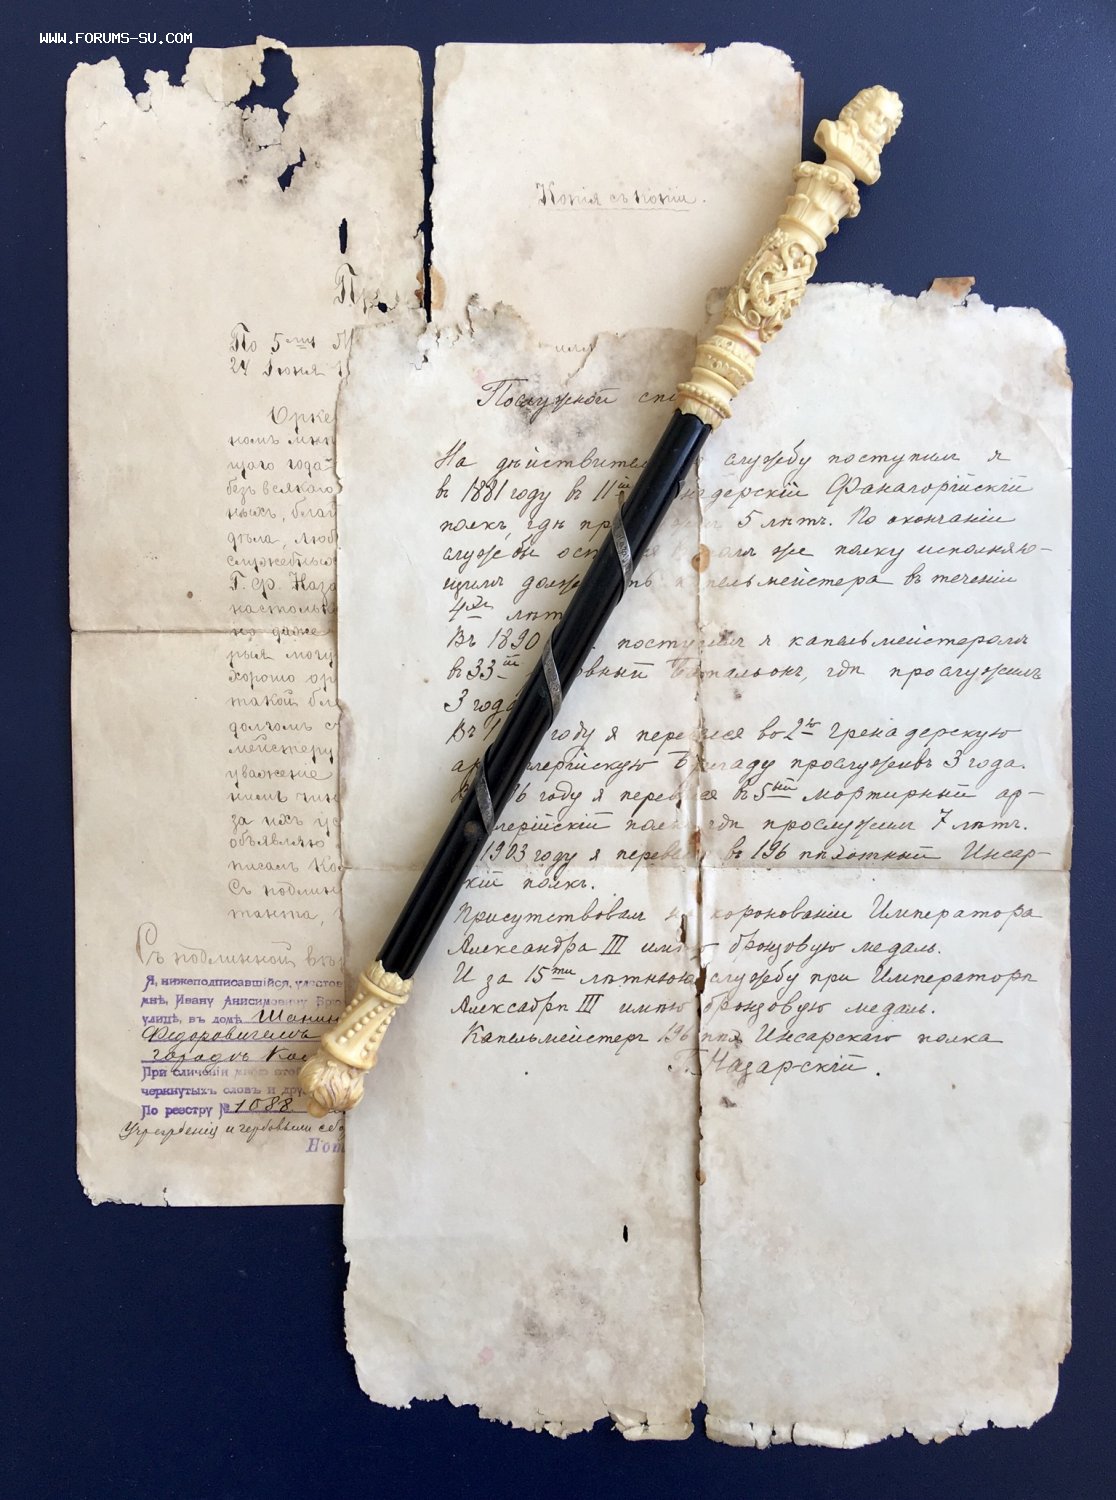 WWW.FORUMS-SU.COM
Копія съ копіи.
По 5
24 Іюня
Орке
номъ
щаго года
безъ всякаго
ныхъ, бла
дѣла, лю
служебны
Г. ф. Наза
настольк
но даже
рыя могу
хорошо ор
такой бл
долгомъ с
мейстеру
уваженіе
нимъ чин
за ихъ ус
объявляю
писалъ Ко
Съ подлин
танта,
Съ подлинной вѣр
Я, нижеподписавшійся, удостов
мнѣ, Ивану Анисимовичу Брю
улицѣ, въ домѣ Шанин
Федоровичемъ
городъ Ка
При сличеніи мною этой
черкнутыхъ словъ и дру
По реестру № 1088.
Учрежденіи и гербовыми сбо
Нот
Послужной спи
На дѣйствите службу поступилъ я
въ 1881 году въ 11й адерскій Фанагорійскій
полкъ, гдѣ пр 5 лѣтъ. По окончаніи
службы ост я въ томъ же полку исполняю-
щимъ долж ть капельмейстера въ теченіи
4хъ лѣт
Въ 1890 поступилъ я капельмейстеромъ
въ 33й рвный Баталіонъ, гдѣ прослужилъ
3 года
Въ 1 году я пере лся во 2ю гренадерскую
ар лерійскую Бригаду прослуживъ 3 года.
6 году я перевелся въ 5ый мортирный ар-
лерійскій полкъ гдѣ прослужилъ 7 лѣтъ.
1903 году я перевел въ 196 пѣхотный Инсар-
кій полкъ.
Присутствовалъ на коронованіи Императора
Александра III имѣю бронзовую медаль.
И за 15ти лѣтнюю службу при Императорѣ
Алексабрѣ III имѣю бронзовую медаль.
Капельмейстеръ 196 пѣх Инсарскаго полка
Г. Назарскій.